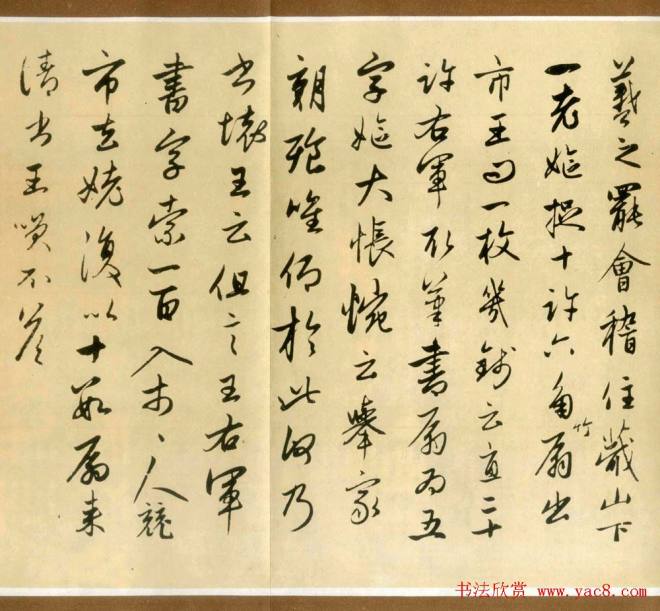 羲之罷會稽住蕺山下
一老嫗捉十許六角竹扇出
市王問一枚幾錢云直二十
許右軍取筆書扇扇為五
字嫗大悵惋云舉家
朝飡唯仰於此何乃
書壞王云但言王右軍
書字索一百入市市人競
市去姥復以十數扇来
請書王笑不答
书法欣赏 www.yac8.com